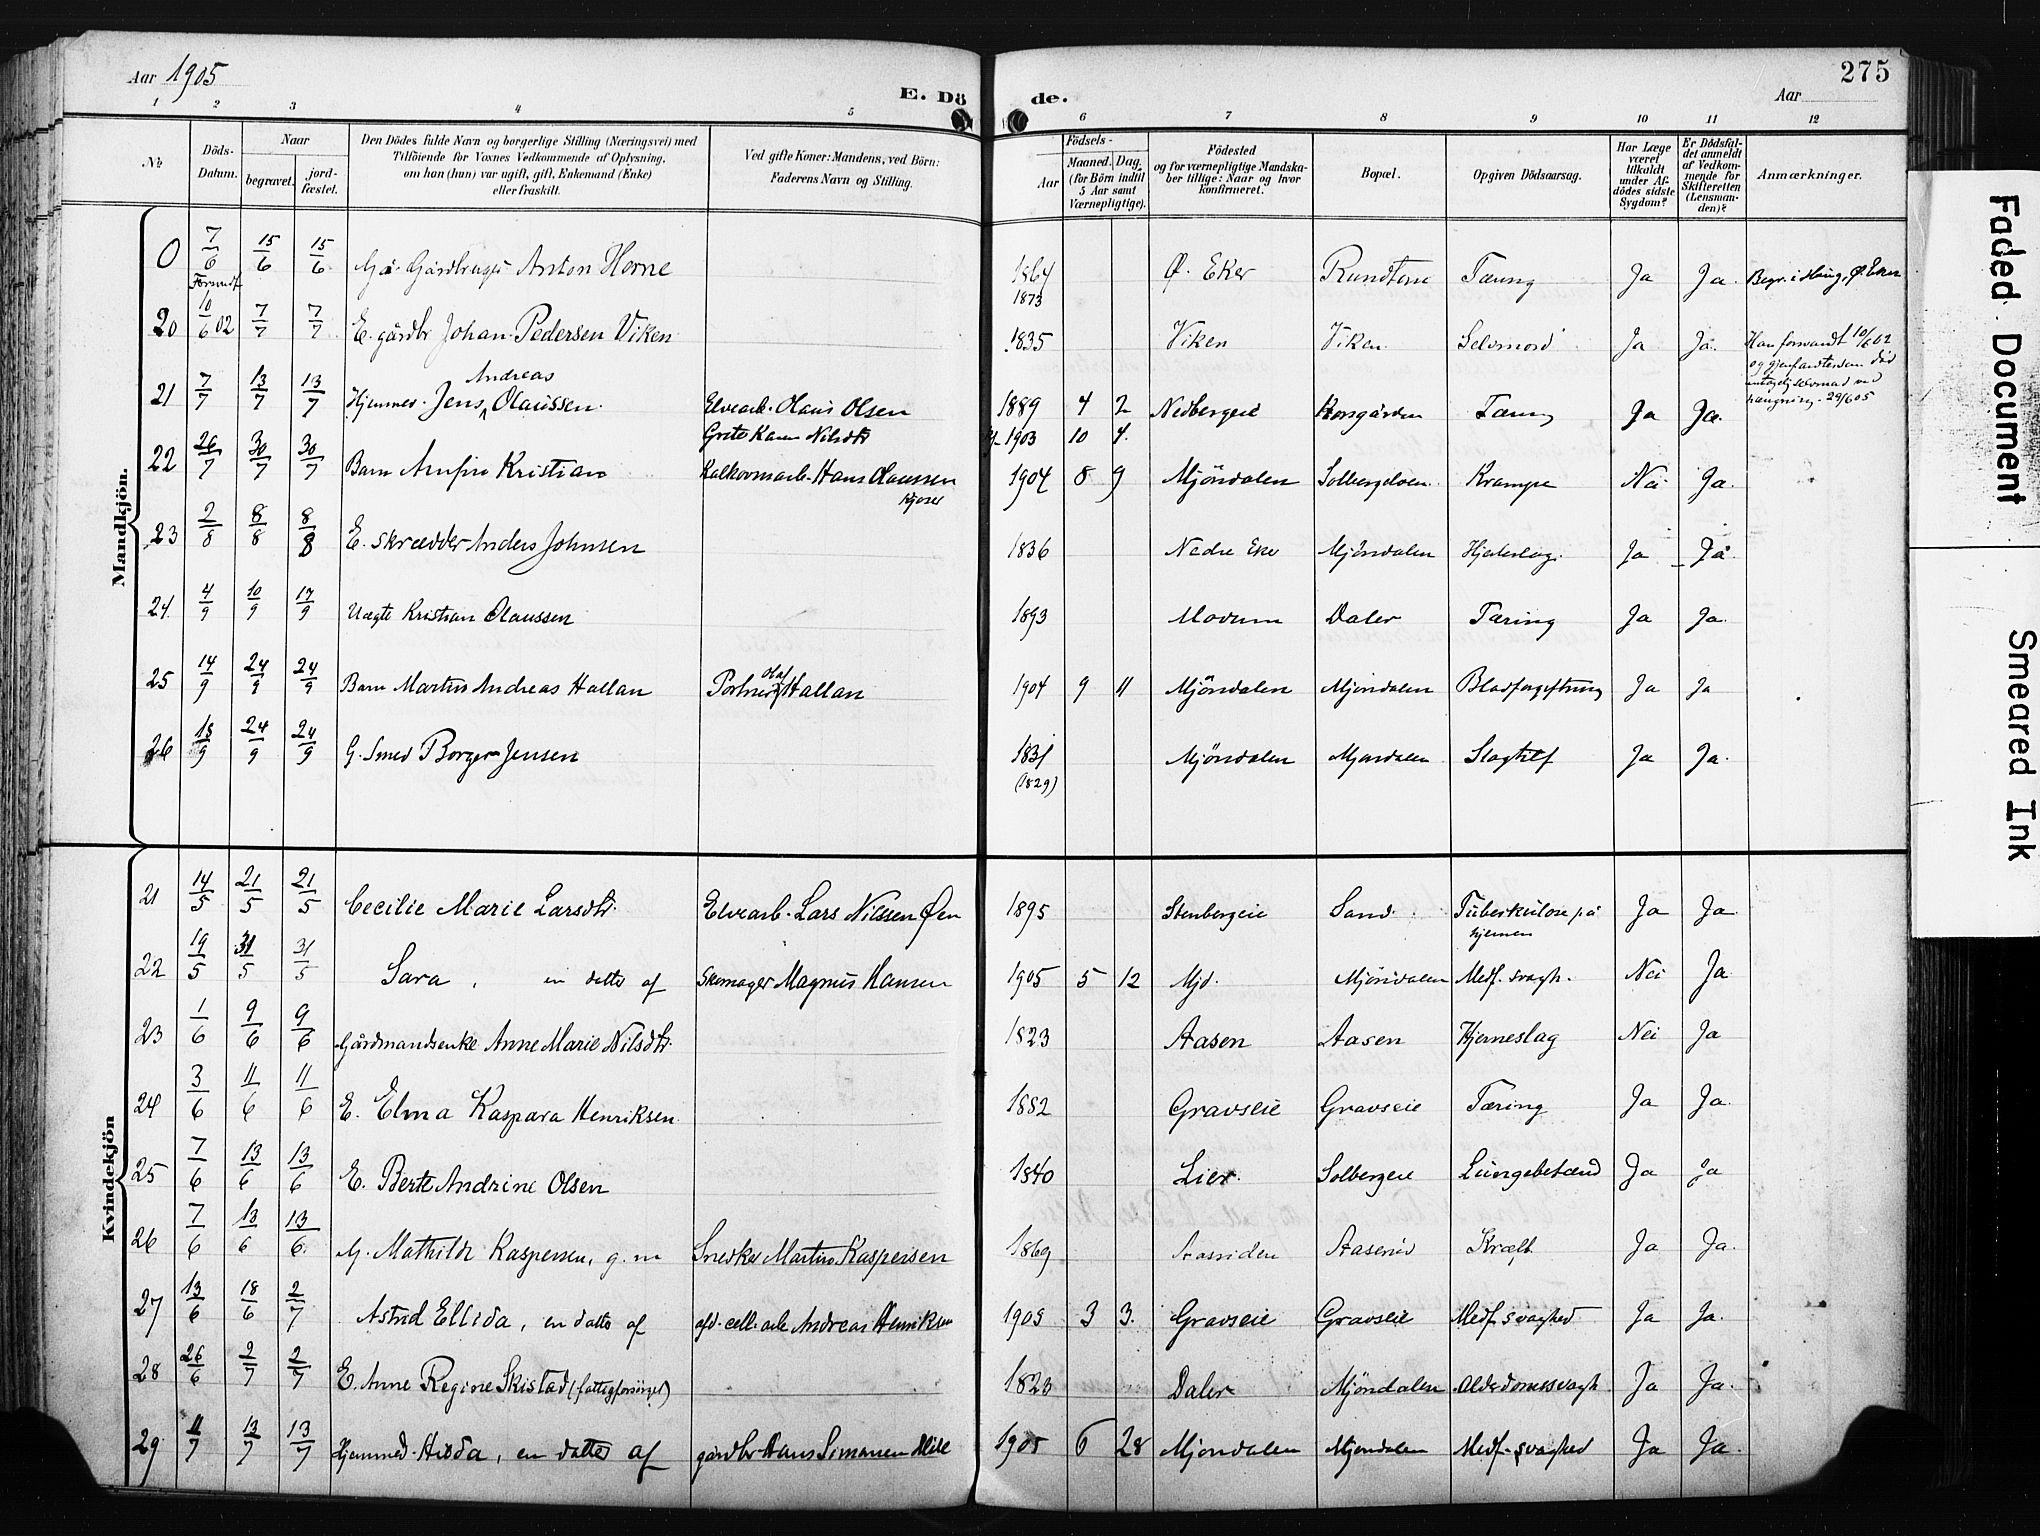 Aar 1905
E. Dö de.
275
Aar
1 2 3 4 5 6 7 8 9 10 11 12
№
Döds-Datum.
Naar
begravet.
jord-fæstet.
Den Dödes fulde Navn og borgerlige Stilling (Næringsvei) med
Tilföiende for Voxnes Vedkommende af Oplysning,
om han (hun) var ugift, gift, Enkemand (Enke)
eller fraskilt.
Ved gifte Koner: Mandens, ved Börn:
Faderens Navn og Stilling.
Födsels-
Aar
Maaned. Dag.
(for Börn indtil
5 Aar samt
Værnepligtige).
Födested
og for værnepligtige Mandska-
ber tillige: Naar og hvor
konfirmeret.
Bopæl.
Opgiven Dödsaarsag.
Har Læge
været
tilkaldt
under Af-
dödes sidste
Sygdom?
Er Dödsfal-
det anmeldt
af Vedkom-
mende for
Skifteretten
(Lensman-
den)?
Anmærkninger.
Mandkjön.
0 7/6 15/6 15/6 Anton Horne 1864 Ø. Eker Tæring Ja Ja Begr. i Haug, Ø. Eker
1873
20 10/6 02 7/7 7/7 E. gårdbr Johan Pedersen Viken 1835 Viken Viken Selvmord Ja Ja Han forsvandt 10/6 02
Andreas
21 7/7 13/7 13/7 Hjemmed. Jens Olaussen Elvearb. Olaus Olsen 1889 4 2 Nedbergeie Tæring Ja Ja
1903 10 4
22 26/7 30/7 30/7 Barn Arnfin Kristian Hans Olaussen 1904 8 9 Mjöndalen Solbergelven Krampe Nei Ja
23 2/8 8/8 8/8 E. Skrædder Anders Johnsen 1836 Nedre Eker Mjöndalen Ja Ja
24 4/9 10/9 17/9 Uægte Kristian Olaussen 1893 Modum Daler Tæring Ja Ja
25 14/9 24/9 24/9 Barn Martin Andreas Hallan Portner Hallan 1904 9 11 Mjöndalen Mjöndalen Blodforgiftning Ja Ja
26 18/9 24/9 24/9 G. Smed Borger Jensen 1831 Mjöndalen Mjøndalen Slagtilf Ja Ja
(1829)
Kvindekjön
21 14/5 21/5 21/5 Cecilie Marie Larsdtr. Elvearb. Lars Nilssen Øen 1895 Stenbergeie Sand Tuberkulose på Ja Ja
hjernen
22 19/5 31/5 31/5 Sara, en datter af Skomager Magnus Hansen 1905 5 12 Mjd. Mjöndalen Medf. svagh. Nei Ja
23 1/6 9/6 9/6 Gårdmandsenke Anne Marie Nilsdtr. 1823 Aasen Aasen Hjerneslag Nei Ja
24 3/6 11/6 11/6 E. Elma Kaspara Henriksen 1882 Gravseie Gravseie Tæring Ja Ja
25 7/6 13/6 13/6 E. Berte Andrine Olsen 1840 Lier Solbergeie Lungebetænd Ja Ja
26 7/6 13/6 13/6 G. Mathilde Kaspersen, g. m Snedker Martin Kaspersen 1869 Aassiden Kræft Ja Ja
27 13/6 18/6 2/7 Astrid Ellida, en datter af Andreas Henriksen 1905 3 3 Gravseie Gravseie Medf. svaghed Ja Ja
28 26/6 2/7 2/7 E. Anne Regine Skistad (fattigforsörget) 1823 Daler Mjöndalen Alderdomssvagh Ja Ja
29 11/7 13/7 13/7 Hjemmed. Hilda, en datter af gårdbr Hans Simonsen Mile 1905 6 28 Mjondalen Mjondalen Medf. svaghed Ja Ja
Faded Document
Smeared Ink